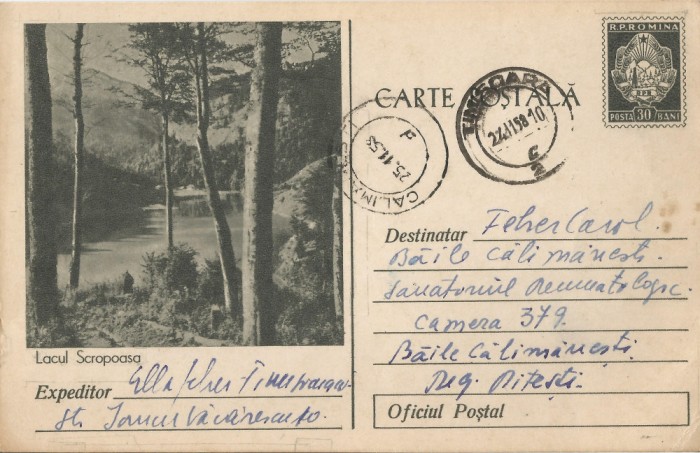 R.P.ROMINA
POSTA 30 BANI
CARTE POȘTALĂ
TIMIȘOARA
22.11.58.10
25.11.58
CALIM
Destinatar Feher Carol.
Băile Călimănești.
Sanatoriul Reumatologic.
Camera 379.
Băile Călimănești.
Reg. Pitești.
Oficiul Poștal
Lacul Scropoasa
Expeditor Ella Feher Timișoara
Str. Iancu Văcărescu